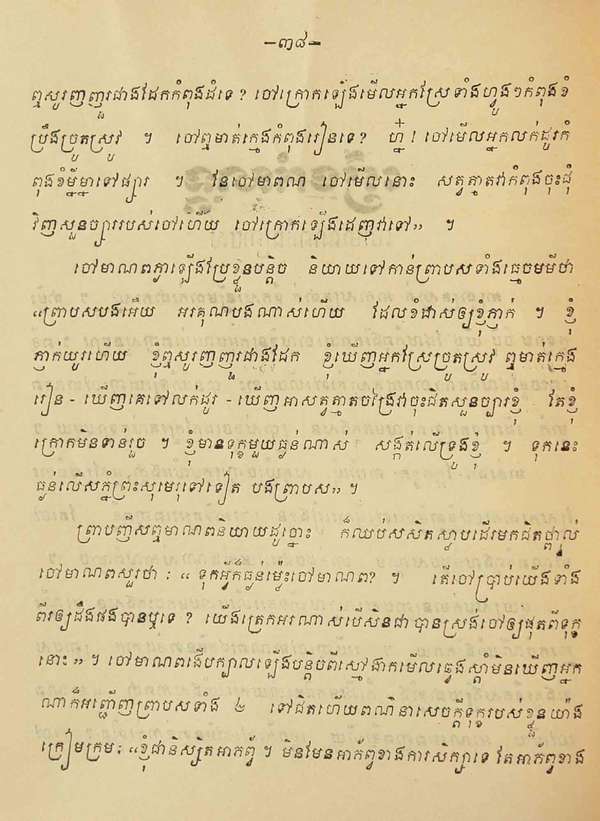 —៣៨—
ឮសូរញញួរជាងដែកកំពុងដំទេ? ចៅក្រោកឡើងមើលអ្នកស្រែទាំងហ្វូងៗកំពុងខំ
ប្រឹងច្រូតស្រូវ ។ ចៅឮមាត់ក្មេងកំពុងរៀនទេ? ហ្ន៎! ចៅមើលអ្នកលក់ដូរកំ
ពុងខំម្នីម្នាទៅផ្សារ ។ នែចៅមាពណ ចៅមើលនោះ សត្វត្មាតវាកំពុងចុះជុំ
វិញសួនច្បាររបស់ចៅហើយ ចៅក្រោកឡើងដេញវាទៅ» ។
ចៅមាណពភ្ញាឡើងប្រែខ្លួនបន្តិច និយាយទៅកាន់ព្រាបសទាំងធ្មេចមមីថា
«ព្រាបសបងអើយ អរគុណបងណាស់ហើយ ដែលខំដាស់ឲ្យខ្ញុំភ្ញាក់ ។ ខ្ញុំ
ភ្ញាក់យូរហើយ ខ្ញុំឮសូរញញួរជាងដែក ខ្ញុំឃើញអ្នកស្រែច្រូតស្រូវ ឮមាត់ក្មេង
រៀន - ឃើញគេទៅលក់ដូរ - ឃើញអាសត្វត្មាតចង្រៃវាចុះជិតសួនច្បារខ្ញុំ តែខ្ញុំ
ក្រោកមិនទាន់រួច ។ ខ្ញុំមានទុក្ខមួយធ្ងន់ណាស់ សង្កត់លើទ្រូងខ្ញុំ ។ ទុកនេះ
ធ្ងន់លើសភ្នំព្រះសុមេរុទៅទៀត បងព្រាបស» ។
ព្រាបញីសឮមាណពនិយាយដូច្នោះ ក៏ឈប់សសិតស្លាបដើរមកជិតថ្គាល់
ចៅមាណពសួរថា : « ទុកអ្វីក៏ធ្ងន់ម្ល៉េះចៅមាណព? ។ តើចៅប្រាប់យើងទាំង
ពីរឲ្យដឹងផងបានឬទេ ? យើងត្រេកអរណាស់បើសិនជាបានស្រង់ចៅឲ្យផុតពីទុក្ខ
នោះ » ។ ចៅមាណពងើបក្បាលឡើងបន្តិចពីស្មៅងាកមើលឆ្វេងស្ដាំមិនឃើញអ្នក
ណាក៏អញ្ជើញព្រាបសទាំង ២ ទៅជិតហើយពណ៌នាសេចក្ដីទុក្ខរបស់ខ្លួនយ៉ាង
ក្រៀមក្រម: «ខ្ញុំជានិស្សិតអាភព្វ ។ មិនមែនអាភ័ព្វខាងការសិក្សាទេ តែអាភ័ព្វខាង